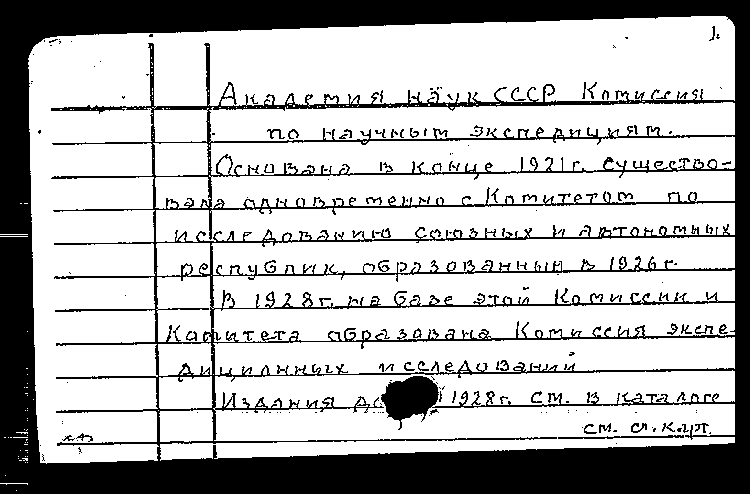 1.
Академия наук СССР Комиссия
по научным экспедициям.
Основана в конце 1921г. Существо-
вала одновременно с Комитетом по
исследованию союзных и автономных
республик, образованным в 1926г
В 1928г. на базе этой Комиссии и
Комитета образована Комиссия экспе-
диционных исследований
Издания до 1928г. см. в каталоге
см. сл. карт.